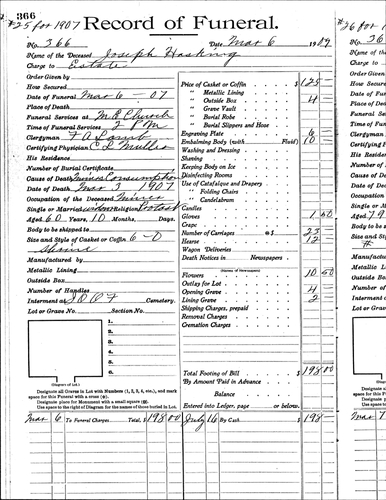 366
#25 for 1907
Record of Funeral.
No. 366
Date Mar 6 1907
Name of the Deceased Joseph Hasking
Charge to Estate
Order Given by
How Secured
Date of Funeral Mar 6 - 07
Place of Death
Funeral Services at M E Church
Time of Funeral Services 2 P M
Clergyman
Certifying Physician C L Muller
His Residence
Number of Burial Certificate
Cause of Death Miners Consumption
Date of Death Mar 3 1907
Occupation of the Deceased Miner
Single or Married Religion
Aged 60 Years, 10 Months, Days.
Body to be shipped to
Size and Style of Casket or Coffin 6-0
Manufactured by
Metallic Lining
Outside Box
Number of Handles
Interment at I O O F Cemetery.
Lot or Grave No. Section No.
1.
2.
3.
4.
5.
6.
(Diagram of Lot.)
Designate all Graves in Lot with Numbers (1, 2, 3, 4, etc.), and mark
space for this Funeral with a cross (+).
Designate place for Monument with a small square.
Use space to right of Diagram for the names of those buried in Lot.
Price of Casket or Coffin $ 125
" Metallic Lining
" Outside Box 4
" Grave Vault
" Burial Robe
" Burial Slippers and Hose
Engraving Plate 6
Embalming Body (with Fluid) 10
Washing and Dressing
Shaving
Keeping Body on Ice
Disinfecting Rooms
Use of Catafalque and Drapery
" Folding Chairs
" Candelabrum
Candles
Gloves 1 50
Crape
Number of Carriages @ $ 23
Hearse 12
Wagon Deliveries
Death Notices in Newspapers
(Names of Newspapers)
Flowers 10 50
Outlay for Lot
Opening Grave 4
Lining Grave 2
Shipping Charges, prepaid
Removal Charges
Cremation Charges
Total Footing of Bill $ 198 00
By Amount Paid in Advance
Balance
Entered into Ledger, page or below.
Mar 6 To Funeral Charges Total, $ 198 00
July 16 By Cash $ 198